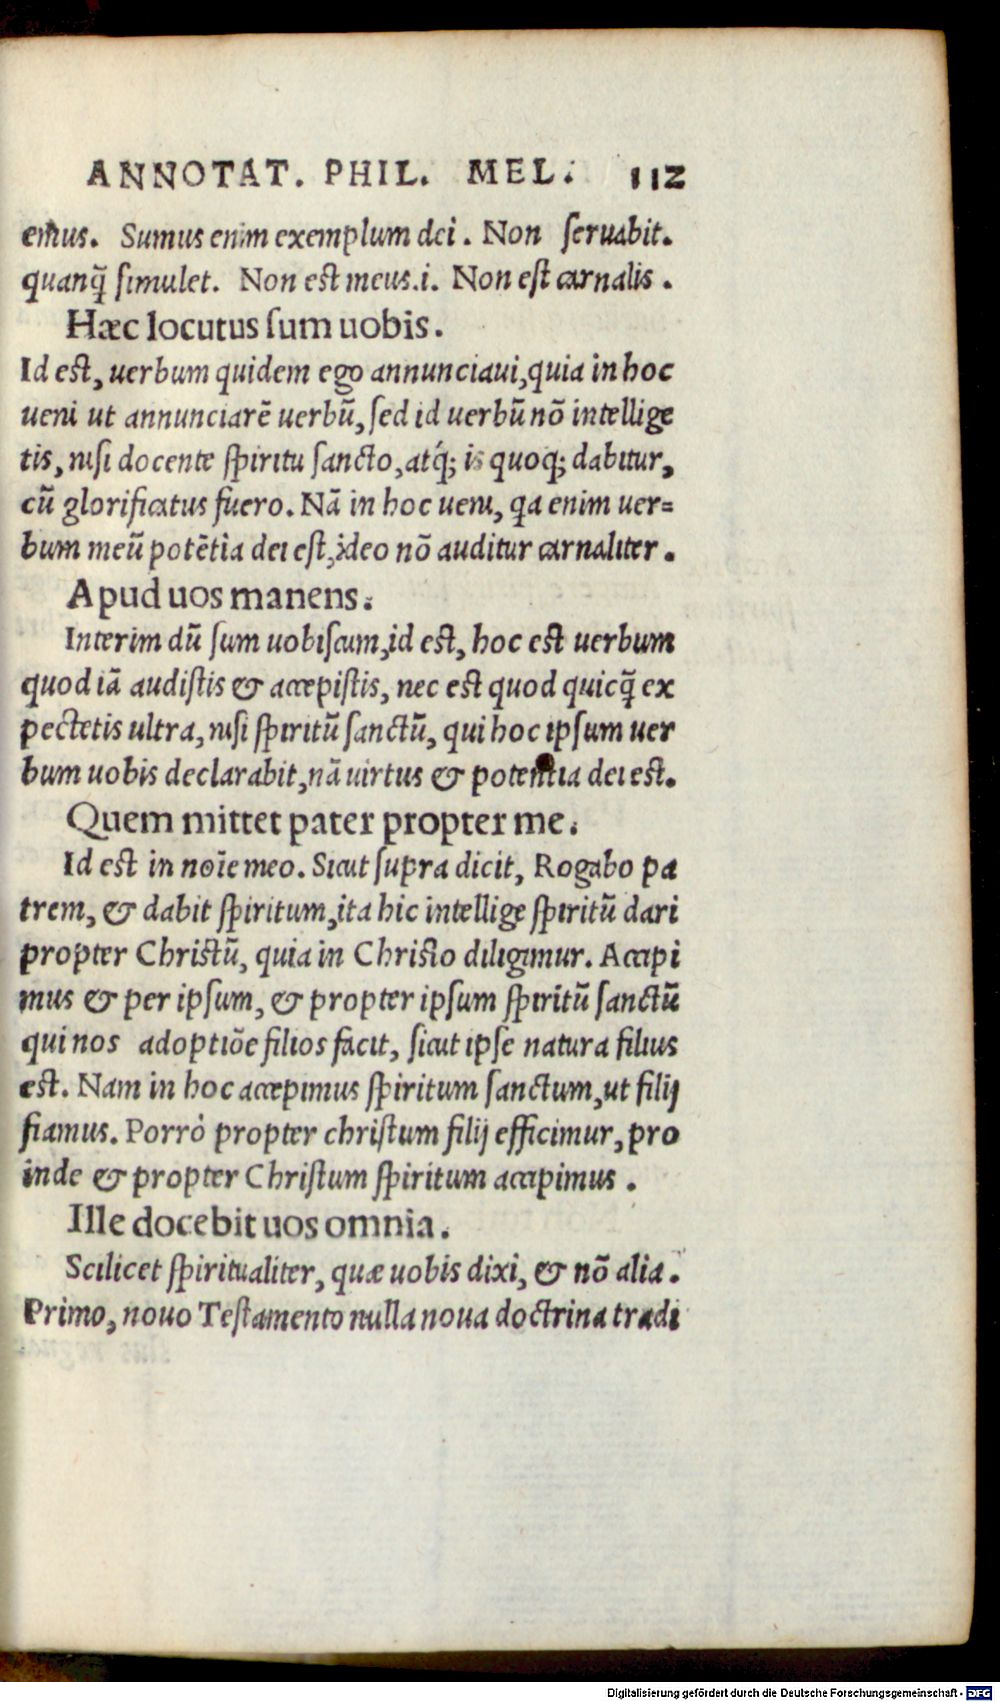 ANNOTAT. PHIL. MEL. 112
emus. Sumus enim exemplum dei. Non seruabit.
quanq̃ simulet. Non est meus.i. Non est carnalis.
Hæc locutus sum uobis.
Id est, uerbum quidem ego annunciaui, quia in hoc
ueni ut annunciarē uerbū, sed id uerbū nō intellige
tis, nisi docente spiritu sancto, atq́; is quoq; dabitur,
cū glorificatus fuero. Nā in hoc ueni, qa enim uer=
bum meū potētia dei est, ideo nō auditur carnaliter.
Apud uos manens.
Interim dū sum uobiscum, id est, hoc est uerbum
quod iā audistis & accepistis, nec est quod quicq̃ ex
pectetis ultra, nisi spiritū sanctū, qui hoc ipsum uer
bum uobis declarabit, nā uirtus & potentia dei est.
Quem mittet pater propter me.
Id est in noīe meo. Sicut supra dicit, Rogabo pa
trem, & dabit spiritum, ita hic intellige spiritū dari
propter Christū, quia in Christo diligimur. Accipi
mus & per ipsum, & propter ipsum spiritū sanctū
qui nos adoptiōe filios facit, sicut ipse natura filius
est. Nam in hoc accepimus spiritum sanctum, ut filij
fiamus. Porrò propter christum filij efficimur, pro
inde & propter Christum spiritum accipimus.
Ille docebit uos omnia.
Scilicet spiritualiter, quæ uobis dixi, & nō alia.
Primo, nouo Testamento nulla noua doctrina tradi
Digitalisierung gefördert durch die Deutsche Forschungsgemeinschaft - DFG